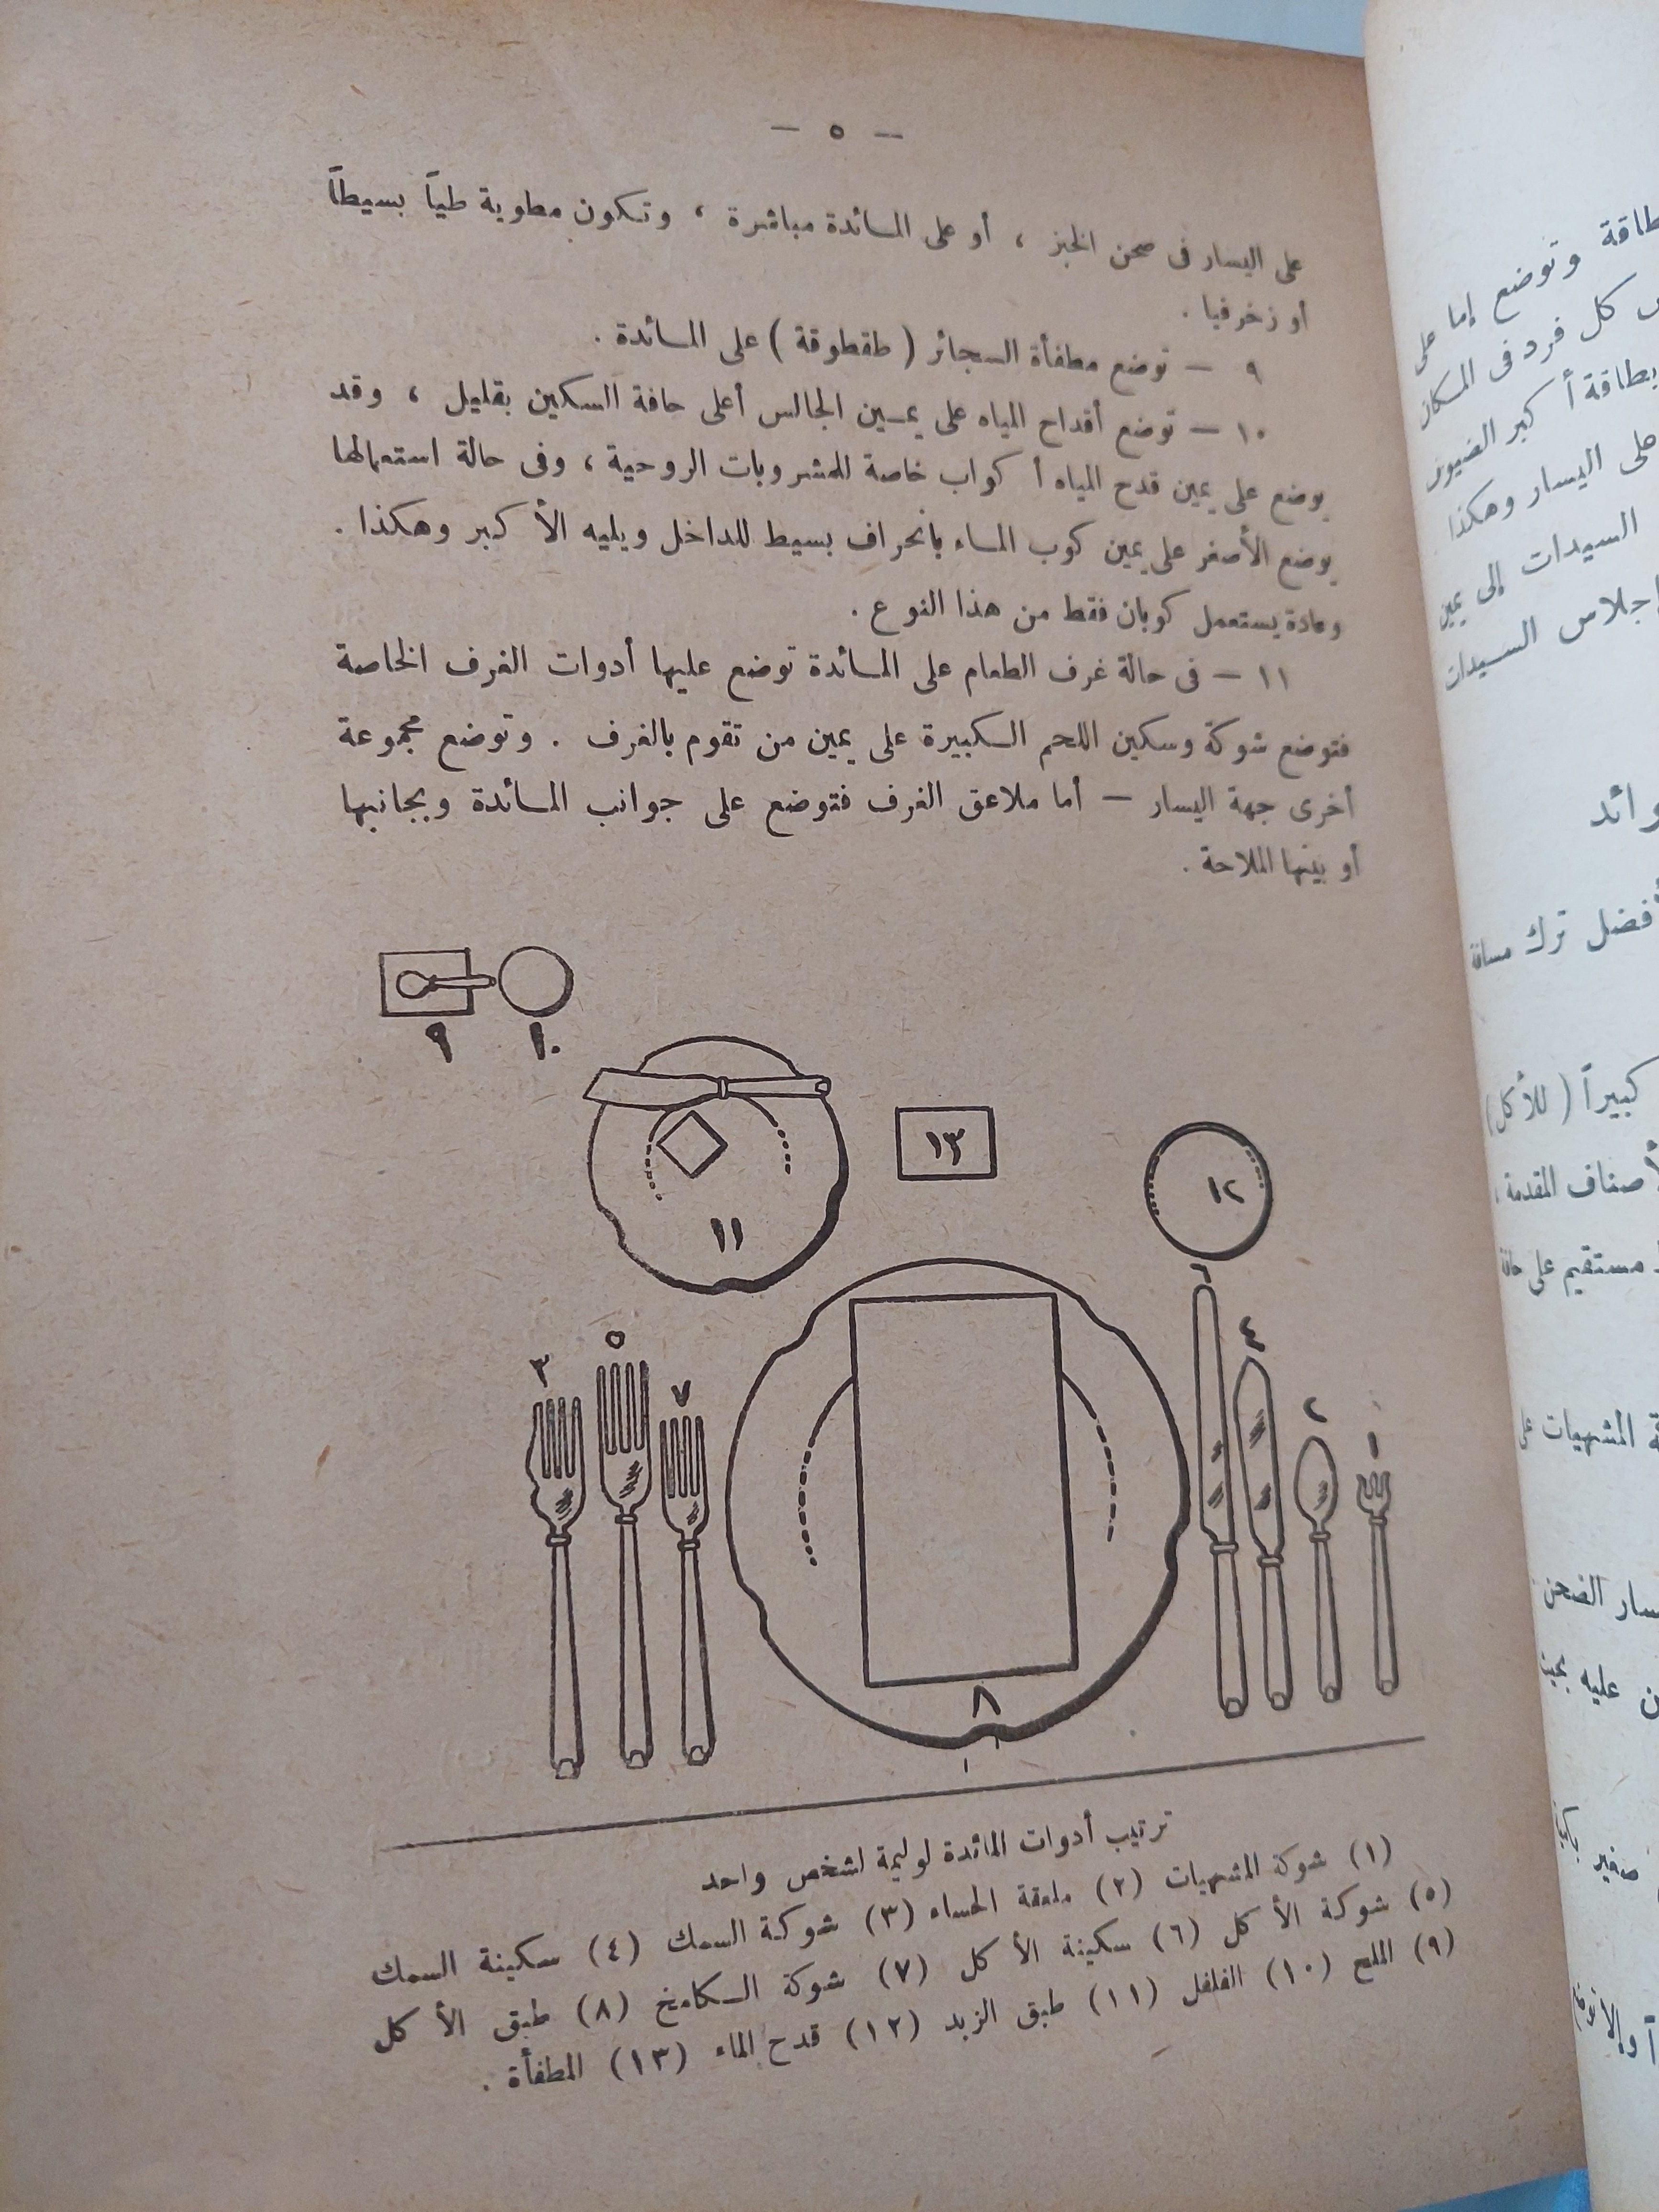 — ٥ —
على اليسار فى صحن الخبز ، أو على المائدة مباشرة ، وتكون مطوية طياً بسيطاً
أو زخرفيا .
٩ — توضع مطفأة السجائر ( طقطوقة ) على المائدة .
١٠ — توضع أقداح المياه على يمين الجالس أعلى حافة السكين بقليل ، وقد
يوضع على يمين قدح المياه أكواب خاصة للمشروبات الروحية ، وفى حالة استعمالها
يوضع الأصغر على يمين كوب الماء بانحراف بسيط للداخل ويليه الأكبر وهكذا .
وعادة يستعمل كوبان فقط من هذا النوع .
١١ — فى حالة غرف الطعام على المائدة توضع عليها أدوات الغرف الخاصة
فتوضع شوكة وسكين اللحم الكبيرة على يمين من تقوم بالغرف . وتوضع مجموعة
أخرى جهة اليسار — أما ملاعق الغرف فتوضع على جوانب المائدة وبجانبها
أو بينها الملاحة .
٩
١٠
١١
١٣
١٢
٣
٥
٧
٦
٤
٢
١
٨
ترتيب أدوات المائدة لوليمة لشخص واحد
(١) شوكة المشهيات (٢) ملعقة الحساء (٣) شوكة السمك (٤) سكينة السمك
(٥) شوكة الأكل (٦) سكينة الأكل (٧) شوكة الكامخ (٨) طبق الأكل
(٩) الملح (١٠) الفلفل (١١) طبق الزبد (١٢) قدح الماء (١٣) المطفأة .
وتوضع إما على
كل فرد فى المكان
أكبر الضيوف
على اليسار وهكذا
السيدات إلى يمين
إجلاس السيدات
أفضل ترك مسافة
كبيراً ( للأكل )
الأصناف المقدمة ،
مستقيم على حافة
المشهيات على
عليه بحيث
صغير
وإلا